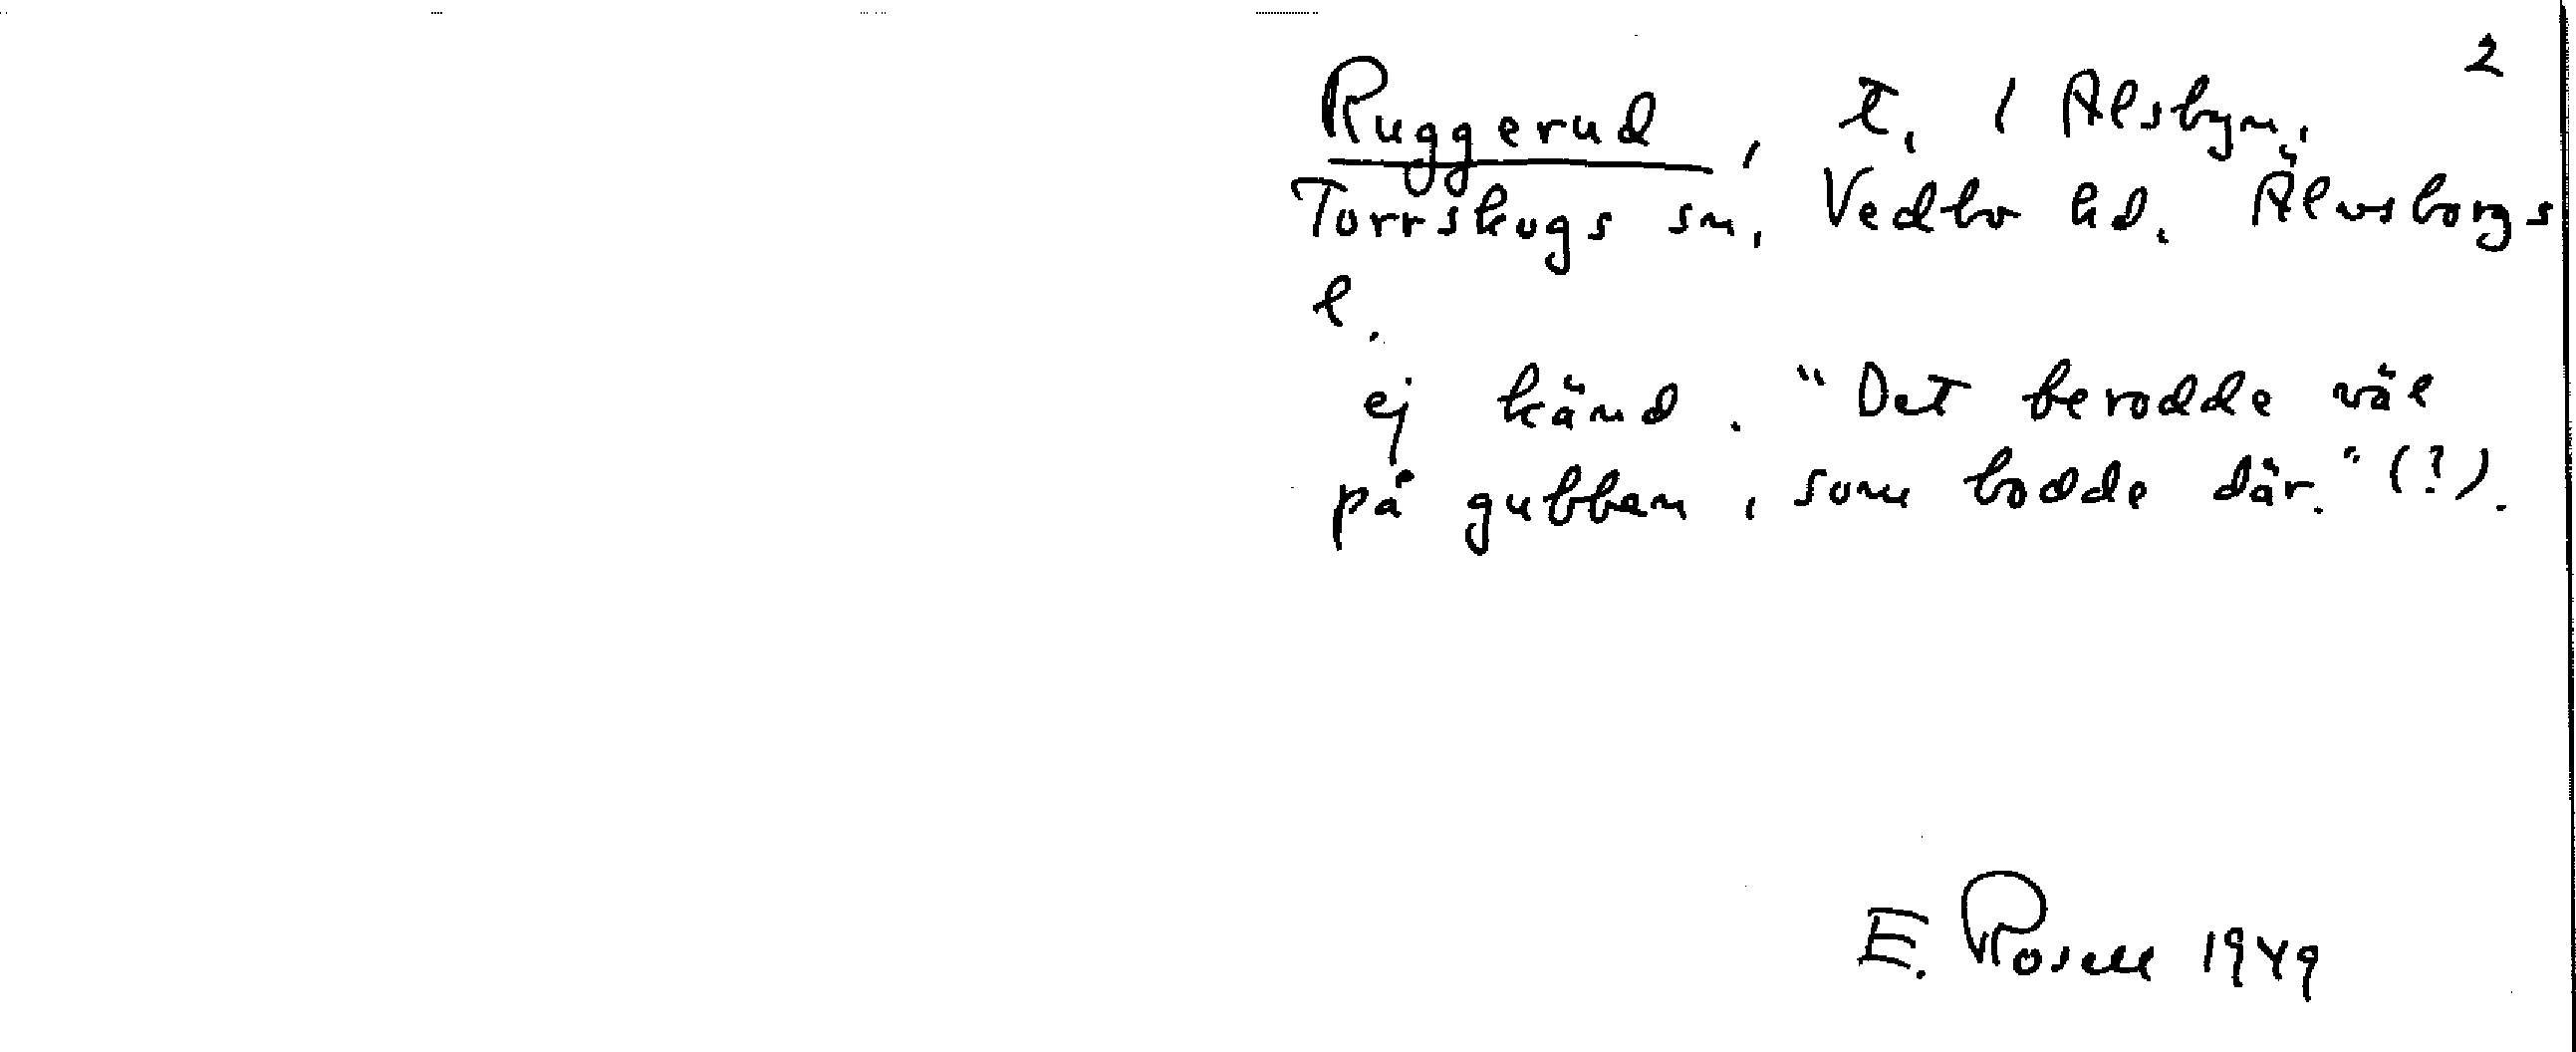 2
Ruggerud, t. 1 Alsbyn,
Torrskogs sn. Vedbo hd. Älvsborgs
l.
ej känd. "Det berodde väl
på gubben, som bodde där." (?).
E. Rosell 1949